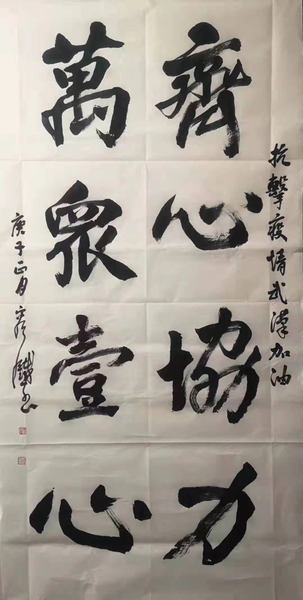 抗擊疫情武漢加油
齊心協力
萬眾壹心
庚子正月